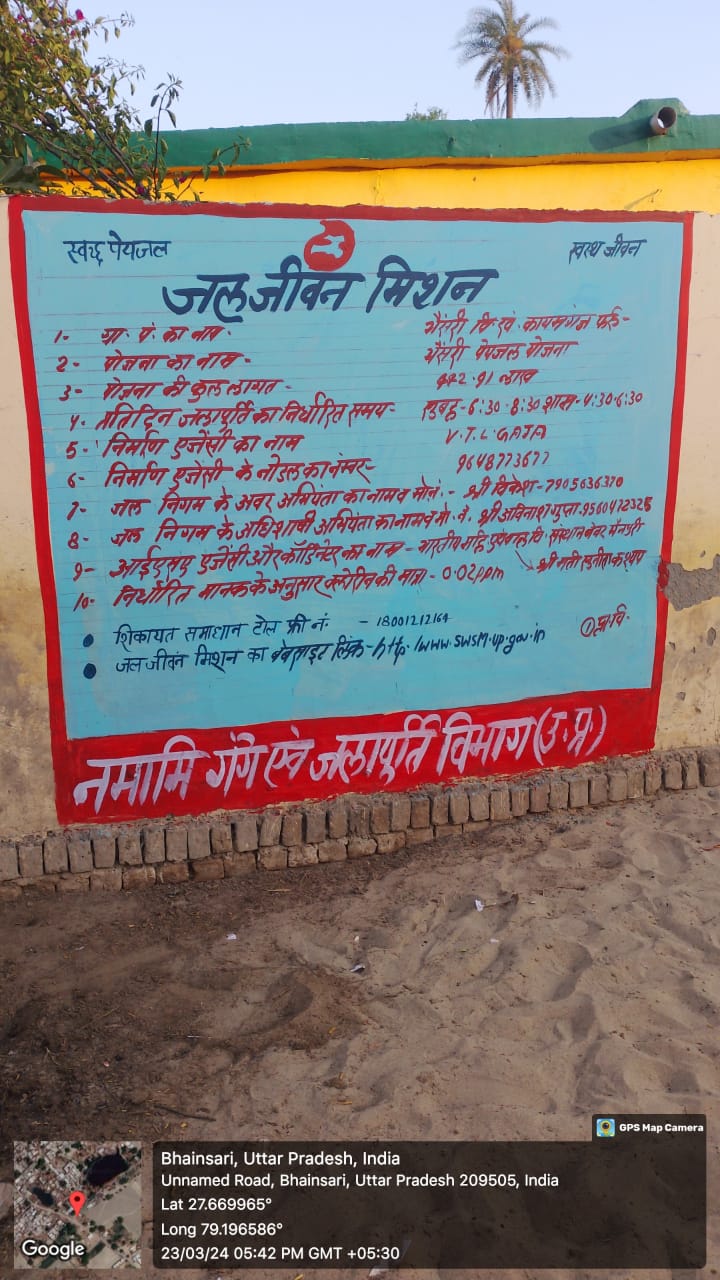 स्वच्छ पेयजल
स्वस्थ जीवन
जल जीवन मिशन
1- ग्रा. पं. का नाम - भैंसरी वि. खं. कायमगंज फर्रु-
2- योजना का नाम - भैंसरी पेयजल योजना
3- योजना की कुल लागत - .91 लाख
4- प्रतिदिन जलापूर्ति का निर्धारित समय- सुबह-6:30-8:30 शाम-4:30-6:30
5- निर्माण एजेंसी का नाम V.T.L. GAJA
6- निर्माण एजेंसी के नोडल का नम्बर- 9648773677
7- जल निगम के अवर अभियंता का नाम व मो नं. - श्री विकेश-7905636370
8- जल निगम के अधिशाषी अभियंता का नाम व मो. नं. श्री अविनाश गुप्ता.9560472325
9- आईएसए एजेंसी और कॉर्डिनेटर का नाम - भारतीय संस्थान बेवर मैनपुरी
श्री मती सुनीता कश्यप
10- निर्धारित मानक के अनुसार क्लोरीन की मात्रा - 0.02ppm
① प्रा. वि.
शिकायत समाधान टोल फ्री नं. - 18001212164
जल जीवन मिशन का वेबसाइट लिंक- http:/www.swsm.up.gov.in
नमामि गंगे एवं जलापूर्ति विभाग (उ.प्र.)
GPS Map Camera
Bhainsari, Uttar Pradesh, India
Unnamed Road, Bhainsari, Uttar Pradesh 209505, India
Lat 27.669965°
Long 79.196586°
23/03/24 05:42 PM GMT +05:30
Google